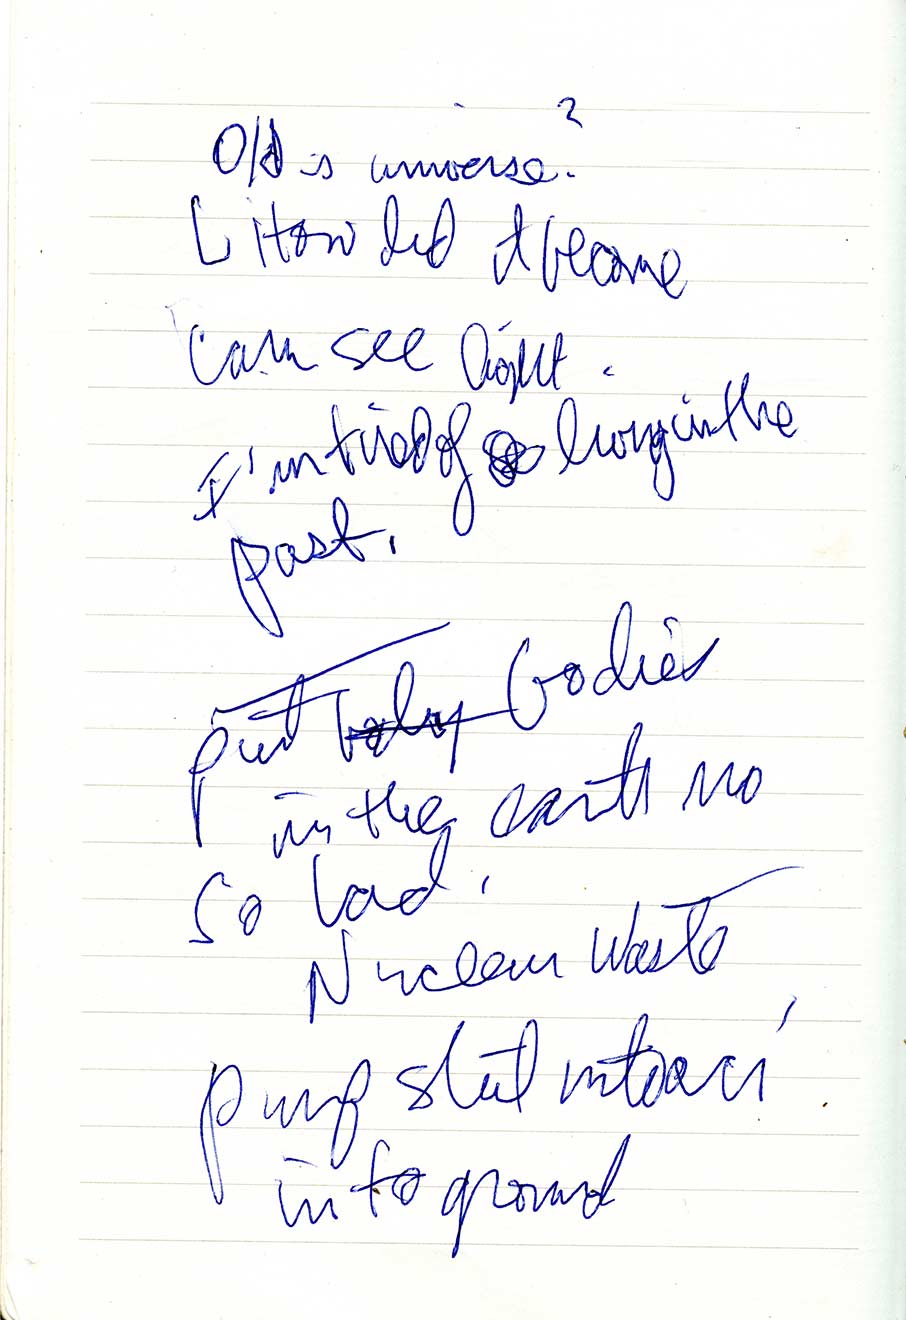 Old is universe?
↳ How did it become
can see light.
I'm tired of living in the
past.
put bodies
in the earth no
so bad.
Nuclear Waste
pump into
into ground